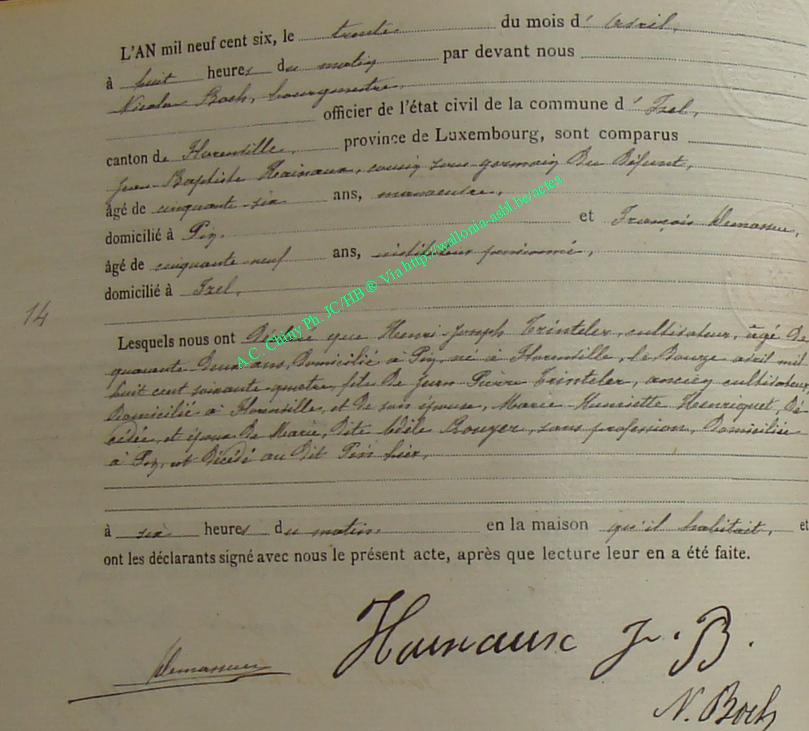 L'AN mil neuf cent six, le trente du mois d' Avril,
à huit heures du matin par devant nous
Nicolas Boch, bourgmestre,
officier de l'état civil de la commune d' Izel,
canton de Florenville, province de Luxembourg, sont comparus
Jean-Baptiste Hainaux, cousin sous-germain du défunt,
âgé de cinquante-six ans, manoeuvre,
domicilié à Pin, et François Demasure,
âgé de cinquante-neuf ans, instituteur pensionné,
domicilié à Izel,
14
Lesquels nous ont déclaré que Henri-Joseph Trinteler, cultivateur, âgé de
quarante deux ans, domicilié à Pin, né à Florenville, le douze avril mil
huit cent soixante-quatre, fils de Jean Pierre Trinteler, ancien cultivateur,
domicilié à Florenville, et de son épouse, Marie Henriette Henriquet, dé
cédée, et époux de Marie, dite Odile Rouyer, sans profession, domiciliée
à Pin, est décédé au dit Pin hier,
à six heures du matin en la maison qu'il habitait, et
ont les déclarants signé avec nous le présent acte, après que lecture leur en a été faite.
Hainaux J. B.
N. Boch
A.C. Chiny Ph. JC/HB ® Via http://wallonia-asbl.be/actes